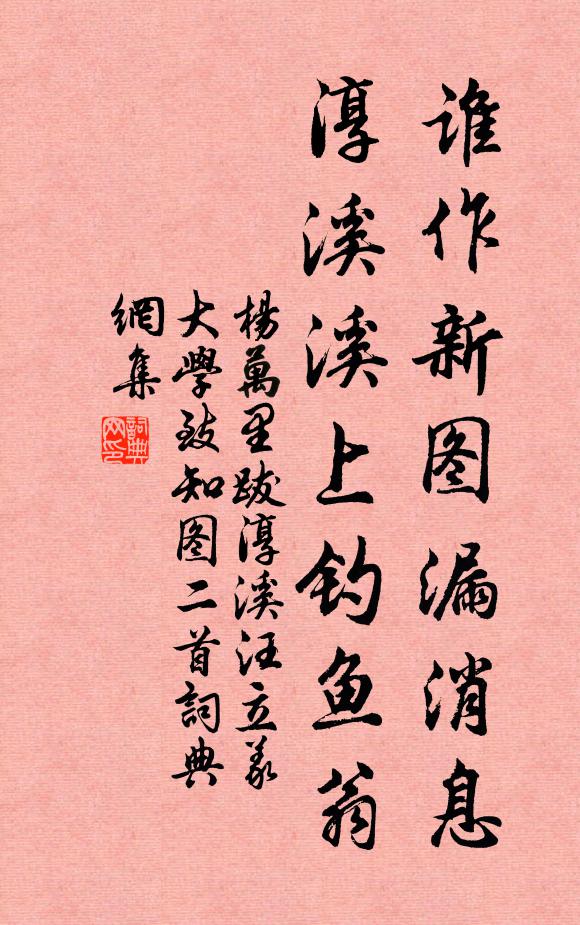 谁作新图漏消息
淳溪溪上钓鱼翁
楊萬里跋淳溪汪立義
大學致知图二首詞典
網集
詞典
网印